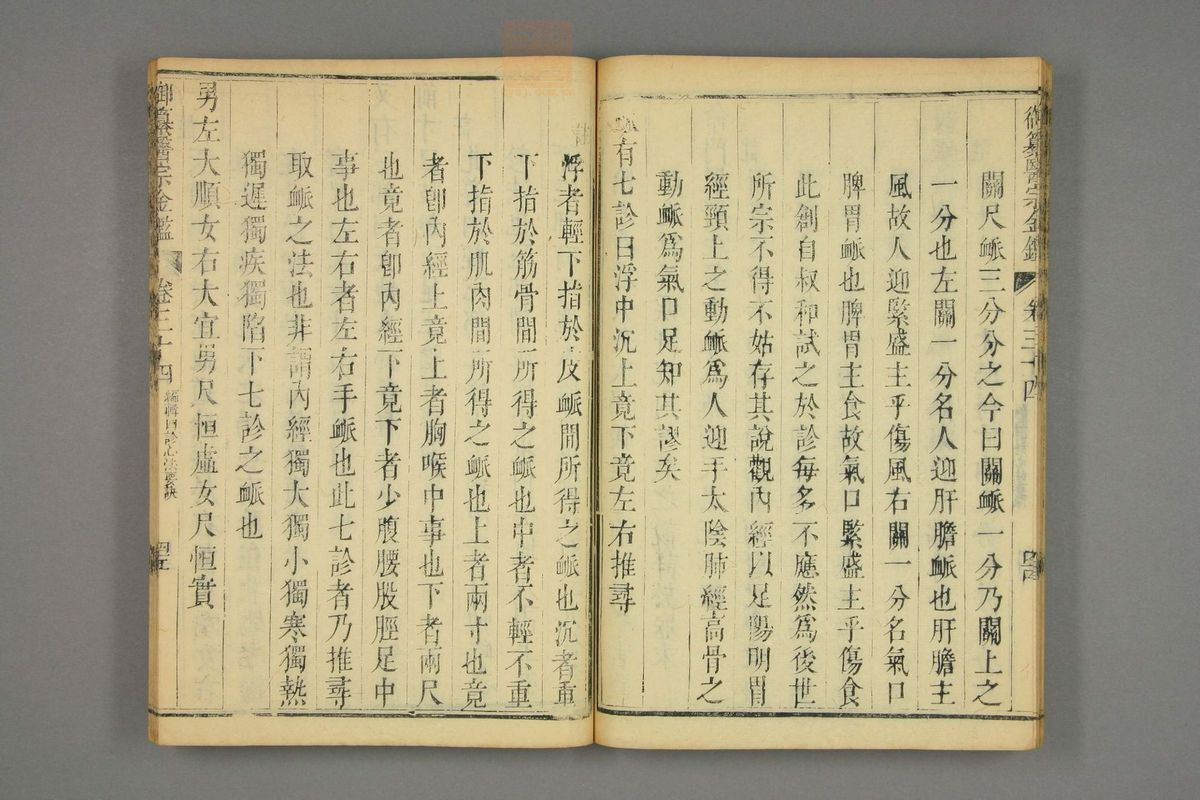 御纂醫宗金鑑 卷三十四 四
關尺䘑三分分之今曰關䘑一分乃關上之
一分也左關一分名人迎肝膽䘑也肝膽主
風故人迎緊盛主乎傷風右關一分名氣口
脾胃䘑也脾胃主食故氣口緊盛主乎傷食
此創自叔和試之於診每多不應然爲後世
所宗不得不姑存其說觀內經以足陽明胃
經頸上之動䘑爲人迎手太陰肺經高骨之
動䘑爲氣口足知其謬矣
䘑有七診曰浮中沉上竟下竟左右推尋
浮者輕下指於皮䘑間所得之䘑也沉者重
下指於筋骨間所得之䘑也中者不輕不重
下指於肌肉間所得之䘑也上者兩寸也竟
者卽內經上竟上者胸喉中事也下者兩尺
也竟者卽內經下竟下者少腹腰股脛足中
事也左右者左右手䘑也此七診者乃推尋
取䘑之法也非謂內經獨大獨小獨寒獨熱
獨遲獨疾獨陷下七診之䘑也
男左大順女右大宜男尺恒虛女尺恒實
御纂醫宗金鑑 卷三十四 編輯四診心法要訣 四五